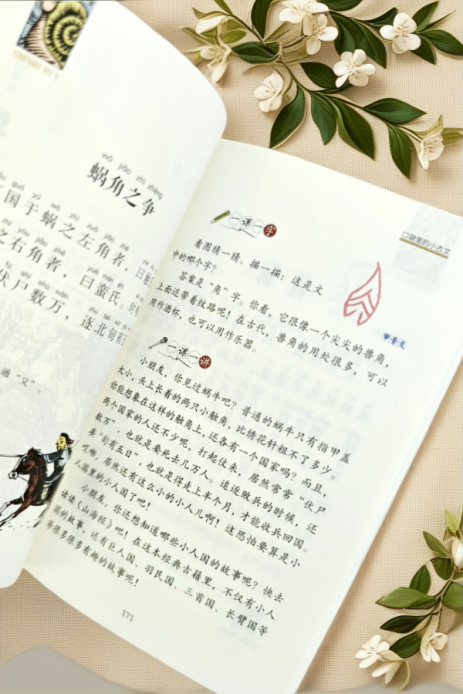 wō jiǎo zhī zhēng
蜗角之争
国于蜗之左角者，曰
之右角者，曰蛮氏，
伏尸数万，逐北旬
通“又”
一课一字
口袋里的小古文
看图猜一猜、描一描：这是文
中的哪个字？
答案是“角”字。你看，它很像一个尖尖的兽角，
上面还带着纹路呢！在古代，兽角的用处很多，可以
用作酒杯，也可以用作乐器。
甲骨文
一课一讲
小朋友，你见过蜗牛吧？普通的蜗牛只有指甲盖
大小，头上长着的两只小触角，比绣花针粗不了多少。
你能想象在这样的触角上，还各有一个国家吗？而且，
两个国家的人还不少呢，打起仗来，居然常常“伏尸
数万”，也就是要死去几万人。追逐败兵的时候，还
要“旬有五日”，也就是得走上半个月，才能收兵回国。
哎哟，居然还有这么小的小人儿啊！这恐怕要算是小
人国里的小人国了吧！
小朋友，你还想知道哪些小人国的故事呢？快去
读读《山海经》吧！在这本经典古籍里，不仅有小人
国的故事，还有巨人国、羽民国、三首国、长臂国等
等很多很多有趣的故事呢！
171